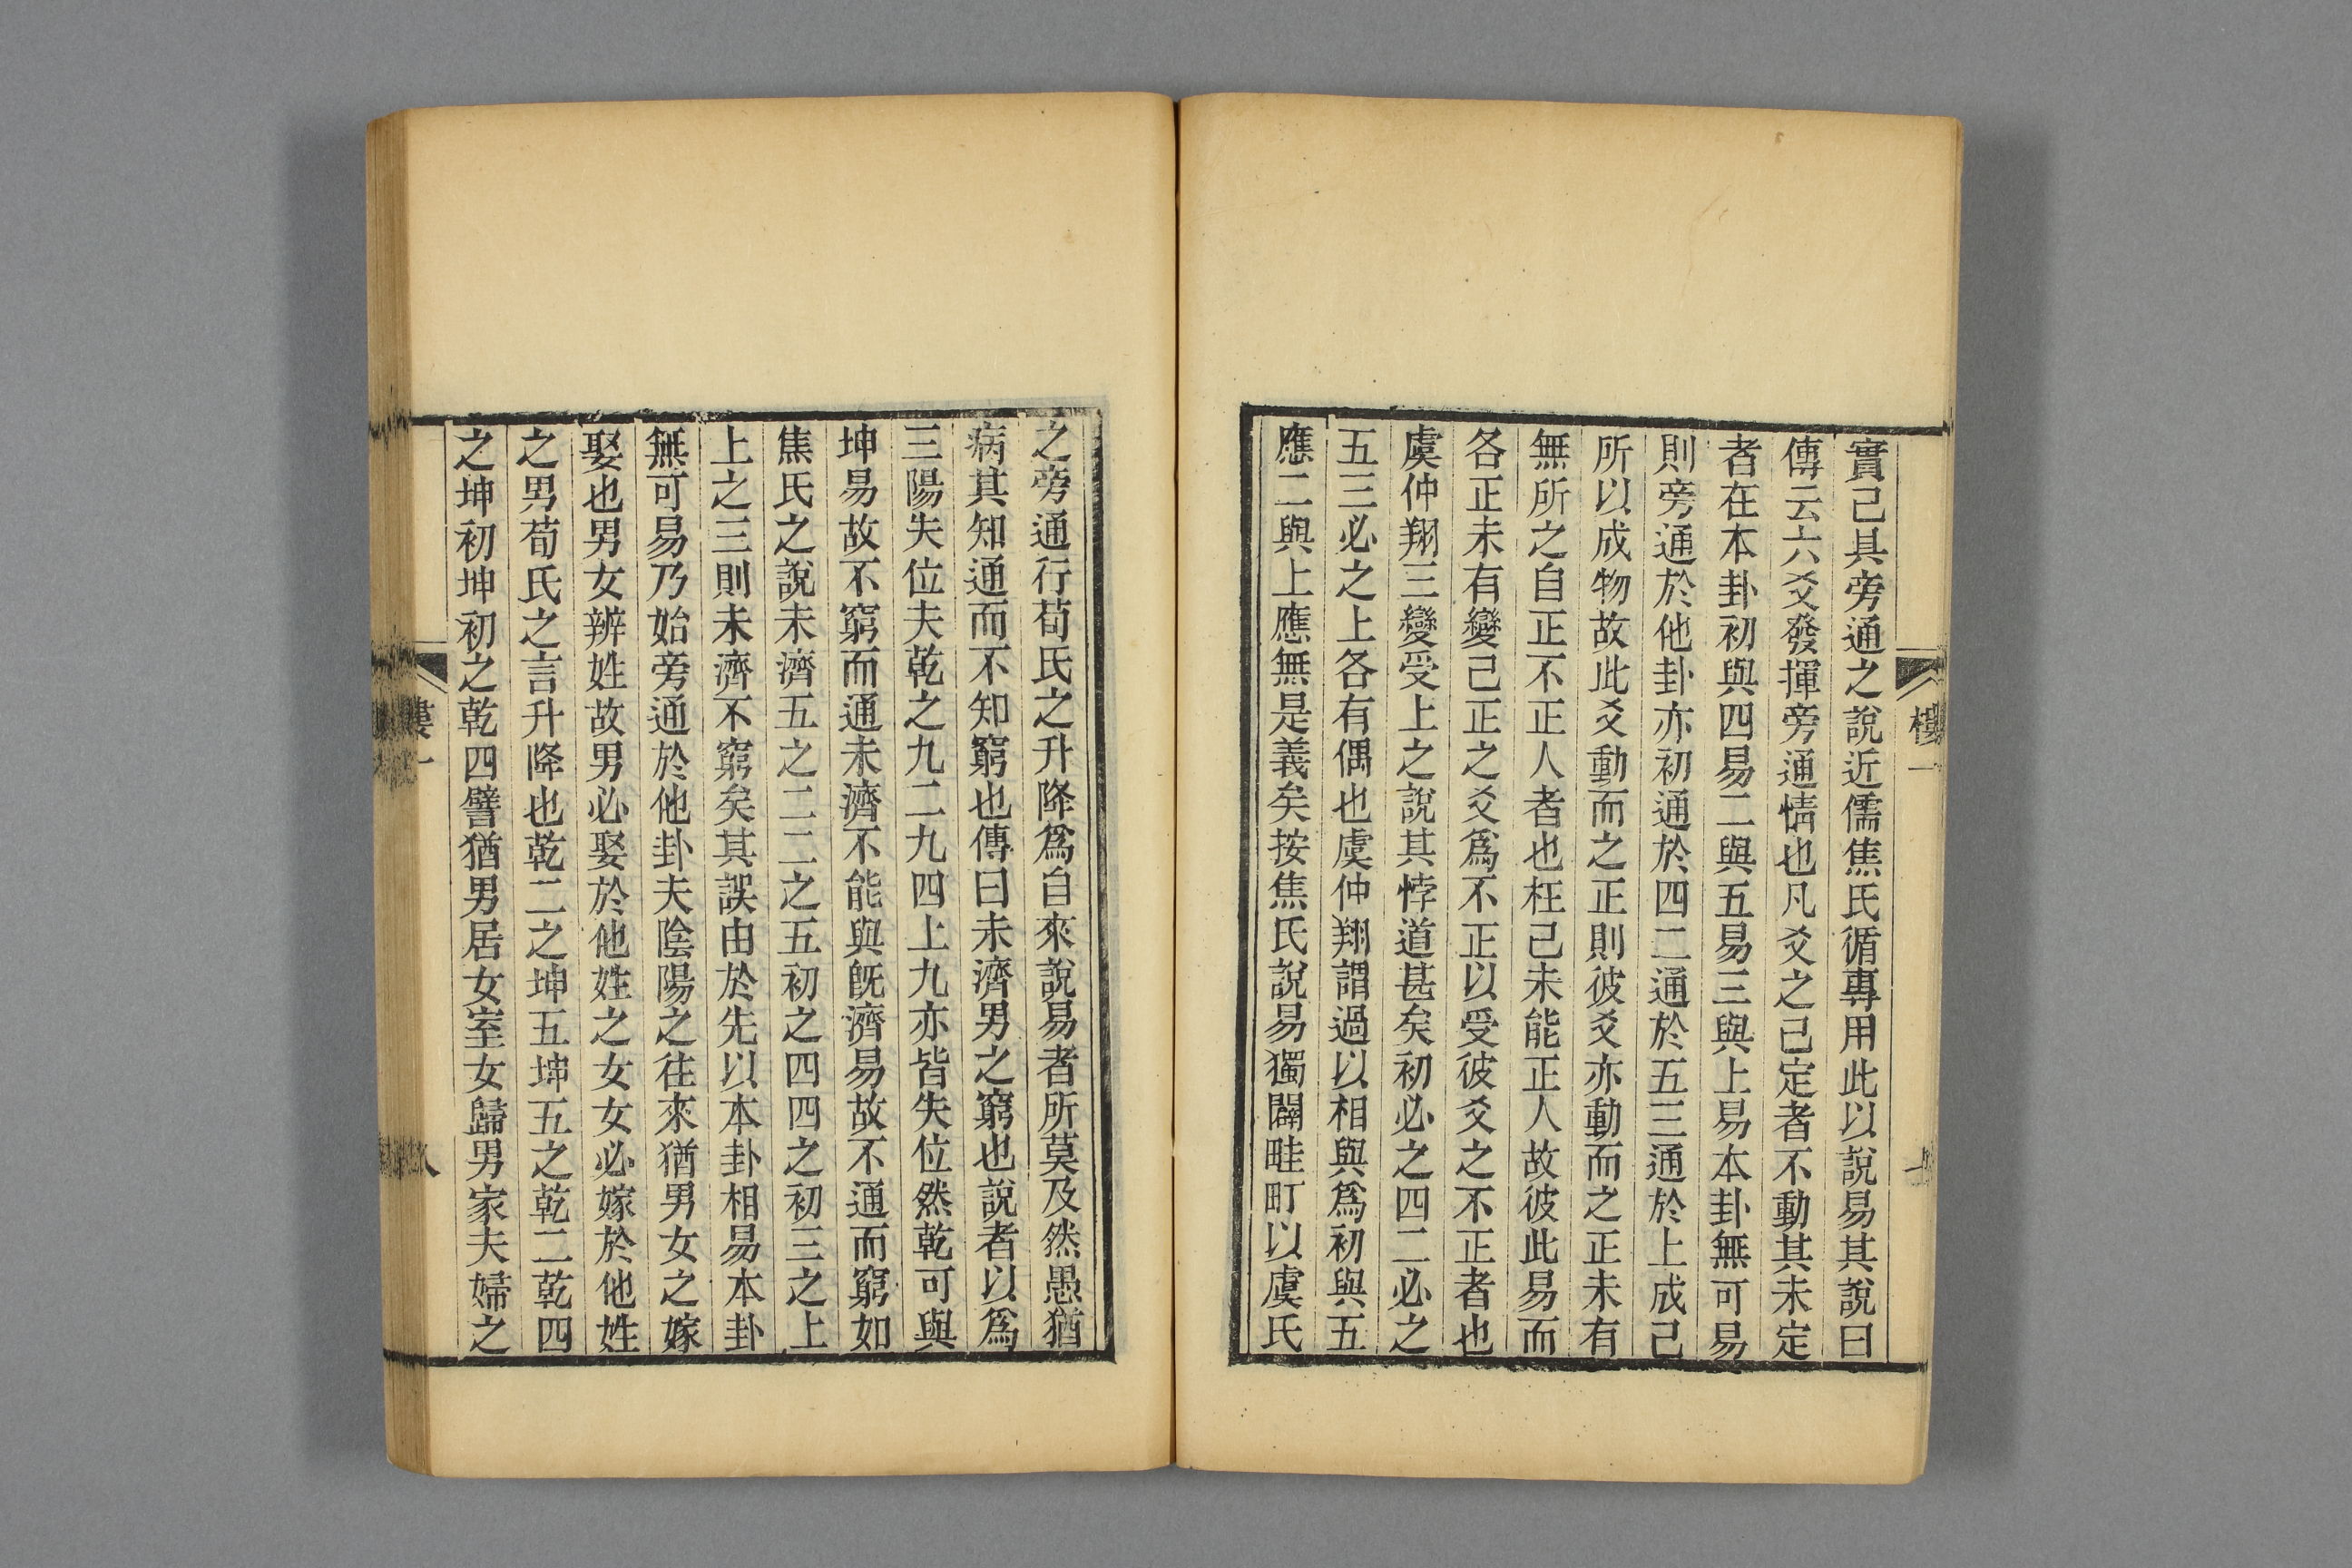 實己具旁通之說近儒焦氏循專用此以說易其說曰
傳云六爻發揮旁通情也凡爻之己定者不動其未定
者在本卦初與四易二與五易三與上易本卦無可易
則旁通於他卦亦初通於四二通於五三通於上成己
所以成物故此爻動而之正則彼爻亦動而之正未有
無所之自正不正人者也枉己未能正人故彼此易而
各正未有變己正之爻爲不正以受彼爻之不正者也
虞仲翔三變受上之說其悖道甚矣初必之四二必之
五三必之上各有偶也虞仲翔謂過以相與爲初與五
應二與上應無是義矣按焦氏說易獨闢畦町以虞氏
樓一
之旁通行荀氏之升降爲自來說易者所莫及然愚猶
病其知通而不知窮也傳曰未濟男之窮也說者以爲
三陽失位夫乾之九二九四上九亦皆失位然乾可與
坤易故不窮而通未濟不能與旣濟易故不通而窮如
焦氏之說未濟五之二二之五初之四四之初三之上
上之三則未濟不窮矣其誤由於先以本卦相易本卦
無可易乃始旁通於他卦夫陰陽之往來猶男女之嫁
娶也男女辨姓故男必娶於他姓之女女必嫁於他姓
之男荀氏之言升降也乾二之坤五坤五之乾二乾四
之坤初坤初之乾四譬猶男居女室女歸男家夫婦之
樓一
八